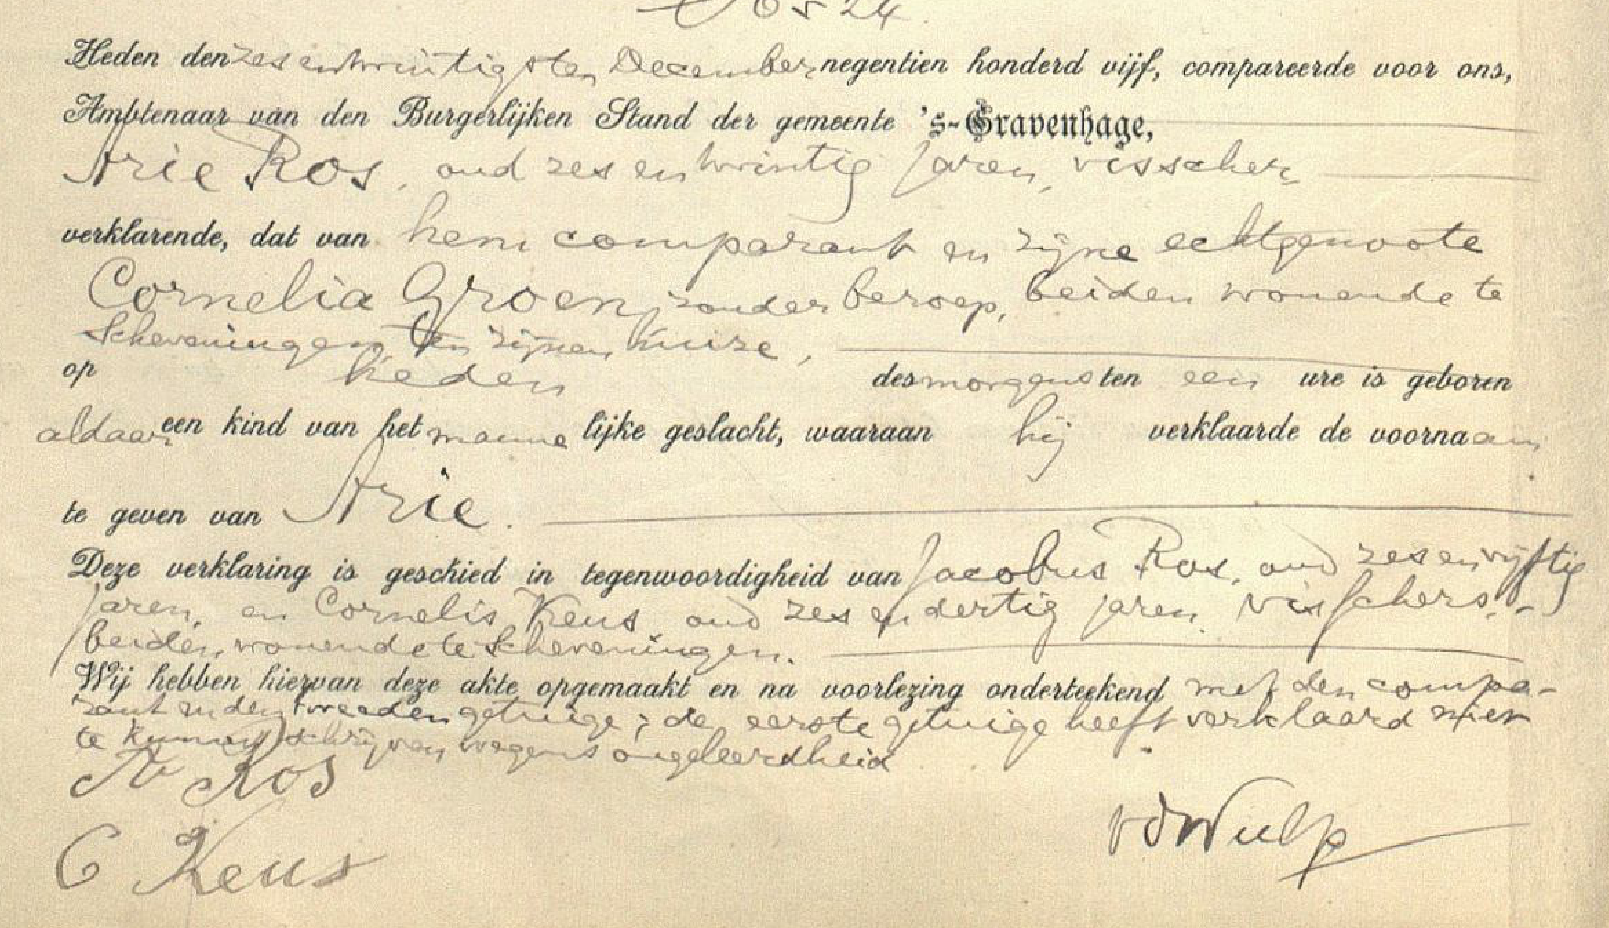 6524.
Heden den zesentwintigsten December negentien honderd vijf, compareerde voor ons,
Ambtenaar van den Burgerlijken Stand der gemeente 's-Gravenhage,
Arie Ros, oud zesentwintig jaren, visscher
verklarende, dat van hem comparant en zijne echtgenoote
Cornelia Groen, zonder beroep, beiden wonende te
Scheveningen ten zijnen huize,
op heden des morgens ten een ure is geboren
aldaar een kind van het manne lijke geslacht, waaraan hij verklaarde de voornaam
te geven van Arie.
Deze verklaring is geschied in tegenwoordigheid van Jacobus Ros, oud zesenvijftig
jaren, en Cornelis Keus, oud zesendertig jaren, visschers,
beiden wonende te Scheveningen.
Wij hebben hiervan deze akte opgemaakt en na voorlezing onderteekend met den compa-
rant en den tweeden getuige; de eerste getuige heeft verklaard niet
te kunnen schrijven wegens ongeleerdheid
A Ros
C Keus
vdWulp